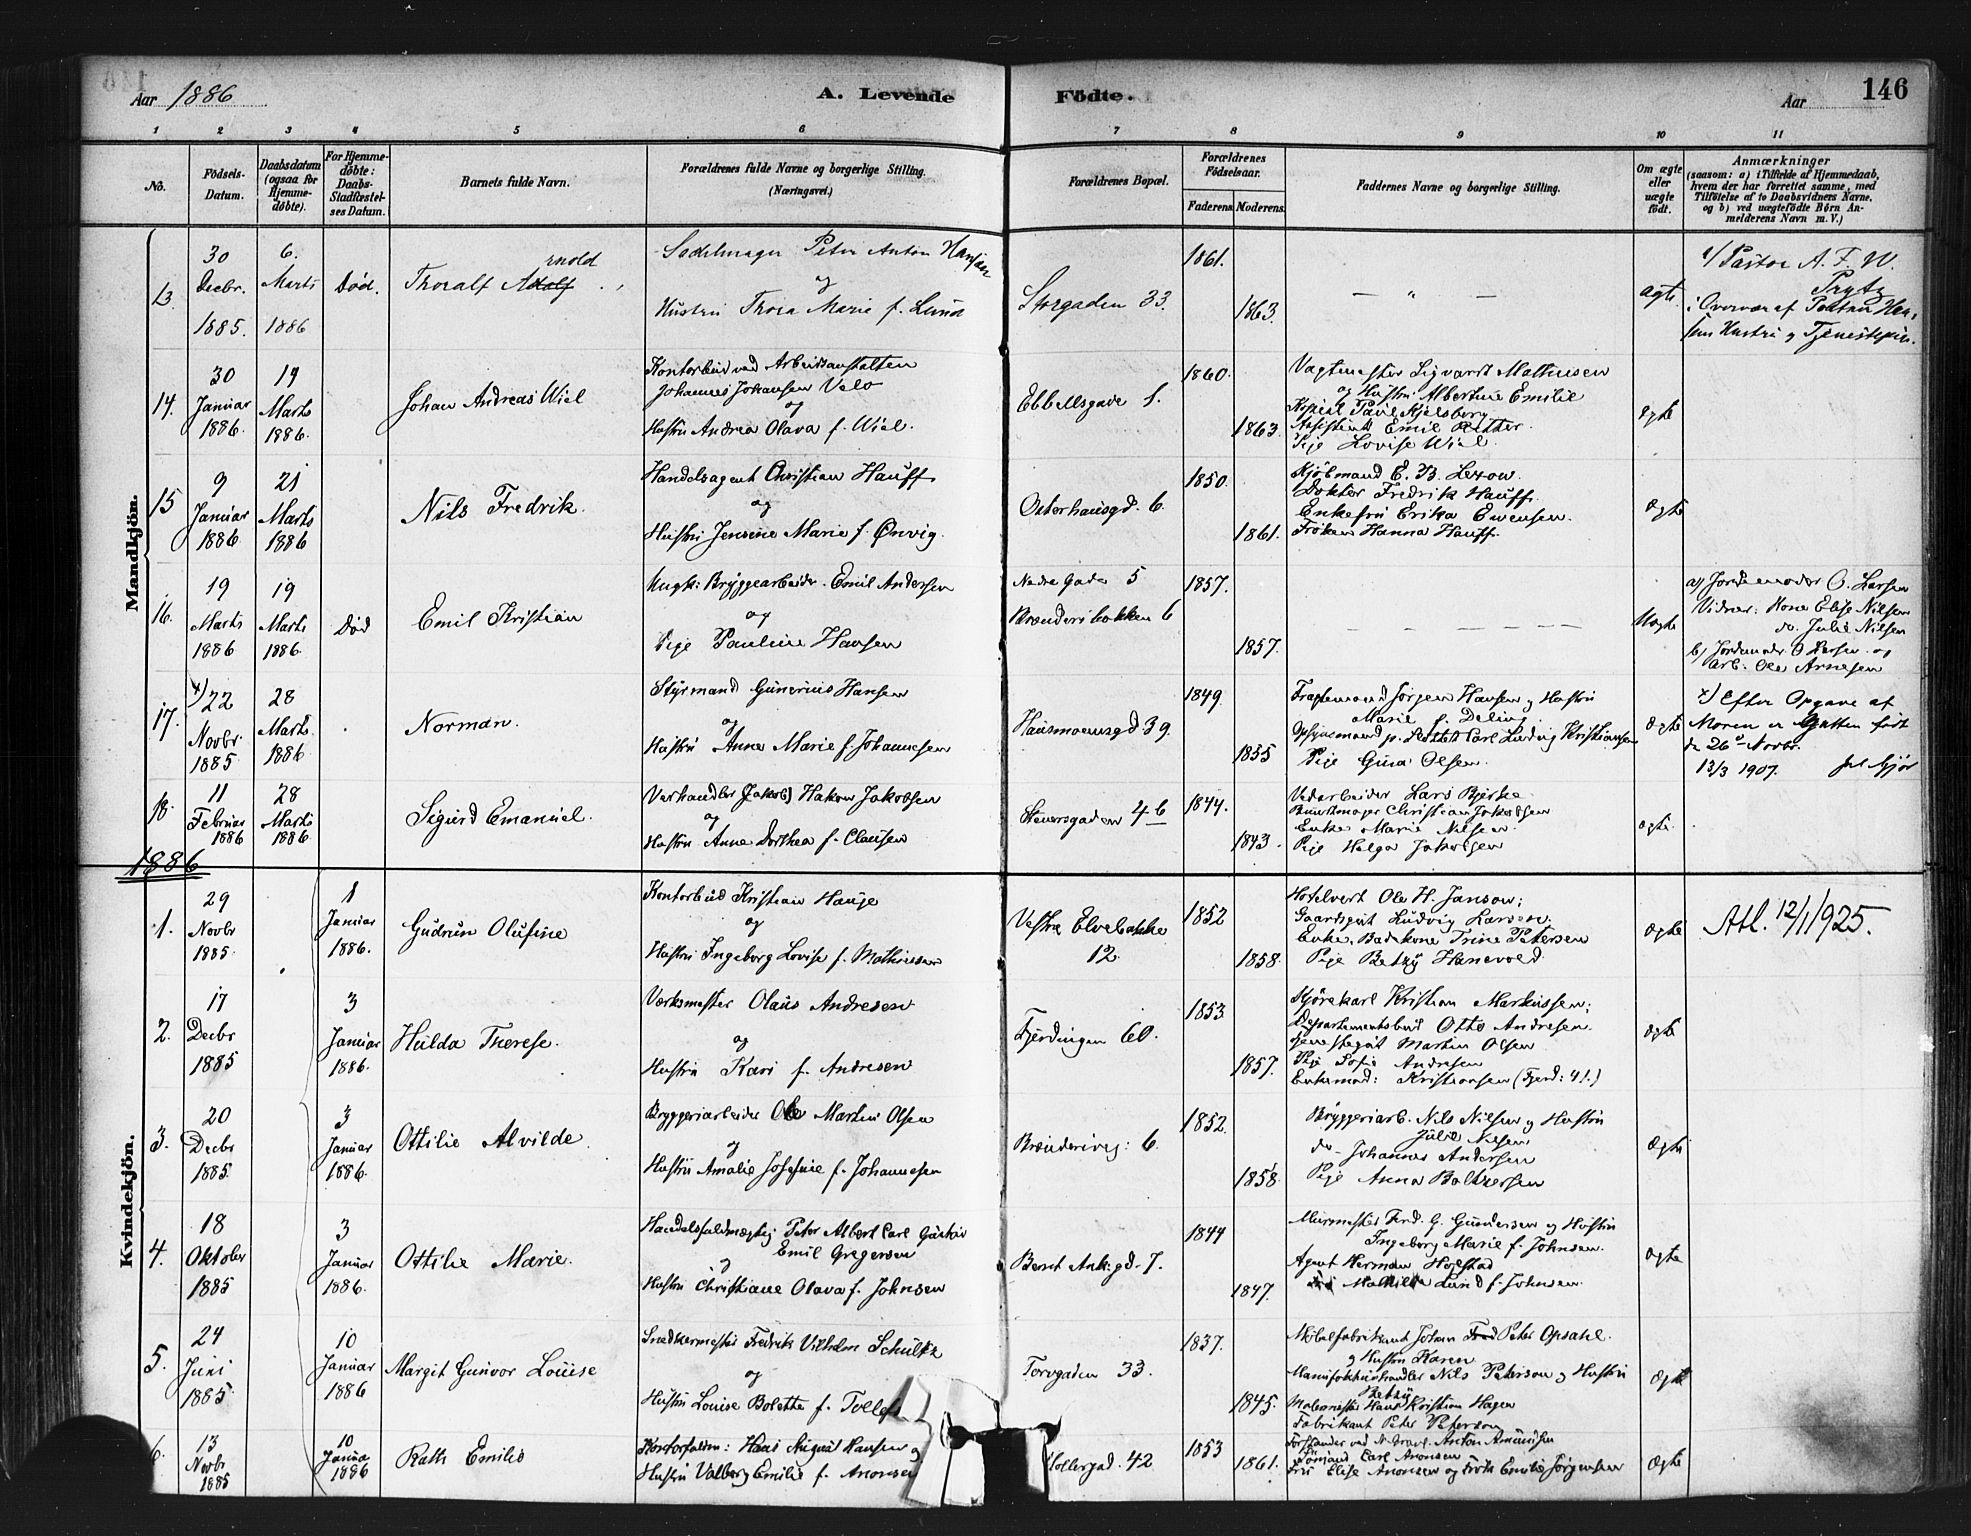 Aar 1886
A. Levende
Födte.
Aar
146
1 2 3 4 5 6 7 8 9 10 11
No.
Födsels-Datum.
Daabsdatum (ogsaa for Hjemme-döbte).
For Hjemme-döbte: Daabs-Stadfæstel-ses Datum.
Barnets fulde Navn.
Forældrenes fulde Navne og borgerlige Stilling. (Næringsvei.)
Forældrenes Bopæl.
Forældrenes Födselsaar.
Faderens. Moderens.
Faddernes Navne og borgerlige Stilling.
Om ægte eller uægte födt.
Anmærkninger
(saasom: a) i Tilfælde af Hjemmedaab,
hvem der har forrettet samme, med
Tilföielse af to Daabsvidners Navne,
og b) ved uægtefödte Börn An-
melderens Navn m. V.)
Mandkjön.
13. 30 Decbr. 1885. 6. Marts 1886 Död. Thoralf Adolf rnold
Sadelmager Peter Anton Hansen
og
Hustru Thora Marie f. Lund
Storgaden 33. 1861. 1863. — " — ægte
a/ Pastor A. F. W.
Prytz
i Overvær af
Hustru og
14. 30 Januar 1886. 19 Marts 1886. Johan Andreas Wiel
Kontorbud ved Arbeidsanstalten
Johannes Johansen Velo
og
Hustru Andrea Olava f. Wiel.
Ebbellsgade 1. 1860. 1863.
Vagtmester Sigvardt Mathisen
og Hustru Albertine Emilie
Kopist Paul Kjelsberg
Assistent Emil Ritter.
Pige Lovise Wiel.
ægte
15 9 Januar 1886. 21 Marts 1886 Nils Fredrik.
Handelsagent Christian Hauff
og
Hustru Jensine Marie f. Ørvig.
Osterhausgd. 6. 1850. 1861.
Kjöbmand E. B. Lexow.
Doktor Fredrik Hauff.
Enkefru Erika Evensen.
Fröken Hanna Hauff.
Ægte
16. 19 Marts 1886 19 Marts 1886. Död Emil Kristian
Ungk: Bryggearbeider. Emil Andersen
og
Pige Pauline Hansen
Nedre Gade 5
Brænderibakken 6
1857. 1857. Uægte
a) Jordemoder O. Larsen
Vidner: Kone Elise Nilsen
do. Julie Nilsen
b) Jordemoder O Larsen og
Arb. Ole Arnesen
17. x) 22 Novbr 1885 28 Marts 1886 Norman.
Styrmand Gunerius Hansen
og
Hustru Anne Marie f. Johannesen
Hausmannsgd 39. 1849. 1855
Jörgen Hansen og Hustru
Marie f. Deling
Carl Ludvig Kristiansen
Pige Gina Olsen.
Ægte
x) Efter Opgave af
Moren er Gutten födt
den 26de Novbr.
13/3 1907.
18. 11 Februar 1886 28 Marts 1886. Sigurd Emanuel.
Vexhandler (Jakob) Hakon Jakobsen
og
Hustru Anne Dorthea f. Clausen
Steversgaden 46 1844. 1843.
Vedarbeider Lars Bjerke
Buntmager Christian Jakobsen
Enke Marie Nilsen.
Pige Helga Jakobsen
ægte.
1886
Kvindekjön.
1. 29 Novbr 1885. 1 Januar 1886. Gudrun Olufine
Kontorbud Kristian Hauge
og
Hustru Ingeborg Lovise f. Mathiesen
Vestre Elvebakke
12.
1852 1858.
Hotelvert Ole H. Janson;
Gaardsgut Ludvig Larsen.
Enke, Badekone Trine Petersen
Pige Betzy Hanevold
Ægte
Att. 12/1 1925.
2. 17 Decbr 1885 3 Januar 1886. Hulda Therese.
Værksmester Olaus Andresen
og
Hustru Kari f. Andresen
Fjerdingen 60. 1853 1857.
Kjörekarl Kristian Markussen;
Departementsbud Otto Andresen.
Tjenestegut Martin Olsen
Pige Sofie Andresen
Enkemad: Kristiansen (Fjerd: 41.)
ægte
3. 20 Decbr 1885. 3 Januar 1886. Ottilie Alvilde.
Bryggeriarbeider Ole Martin Olsen
og
Hustru Amalie Josefine f. Johannesen
Brænderiveg: 6. 1852. 1858.
Bryggeriarb. Nils Nilsen og Hustru
Julie Nilsen
do. Johannes Andersen
Pige Anna Baltzersen
Ægte
4. 18 Oktober 1885 3 Januar 1886. Ottilie Marie.
Handelsfuldmægtig Peter Albert Carl Gustav
Emil Gregersen
og
Hustru Christiane Olava f. Johnsen
Bernt Ankgd. 7. 1844 1847.
Murmester Ferd. G. Gundersen og Hustru
Ingeborg Marie f. Johnsen.
Agent Herman Holstad
Fru Mathilde Lund f. Johnsen.
Ægte
5. 24 Juni 1885 10 Januar 1886 Margit Gunvor Louise
Snedkermester Fredrik Vilhelm Schultz
og
Hustru Louise Bolette f. Tollefs
Torvgaden 33. 1837. 1845.
Möbelfabrikant Johan Fred Peter Opsahl.
og Hustru Karen
Manufakturhandler Nils Peterson og Hustru
Betzy
Malermester Hans Kristian Hagen
Fabrikant Peter Peterson
Ægte
6. 13 Novbr 1885 10 Januar 1886 Ruth Emilie
Kontorfuldm: Hans August Hansen og
Hustru Valborg Emilie f. Aronsen
Möllergad. 42 1853 1861.
Anton Amundsen
Carl Aronsen
Fru Elise Aronsen og Frök Emilie Jörgensen
Ægte